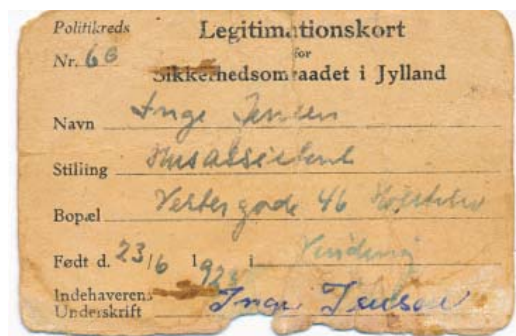 Politikreds Legitimationskort
Nr. 66 for
Sikkerhedsomraadet i Jylland
Navn Inge Jensen
Stilling Husassistent
Bopæl Vestergade 46 Holstebro
Født d. 23/6 192 i Vinding
Indehaverens
Underskrift Inge Jensen